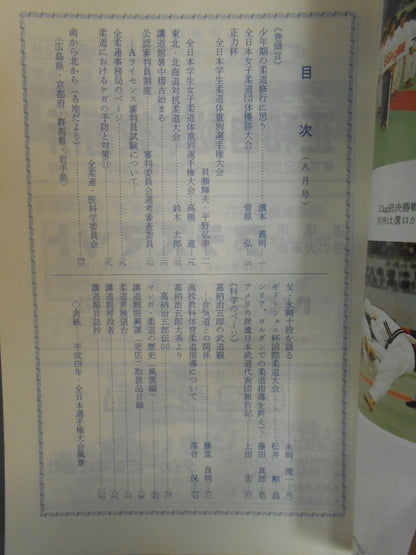 目次（八月号）
〈巻頭言〉
少年期の柔道修行に思う 濵本義明
全日本女子柔道団体優勝大会 菅原弘
正力杯
全日本学生柔道体重別選手権大会
貝瀬輝夫・平野弘幸
全日本学生女子柔道体重別選手権大会 高橋進
東北・北海道対抗柔道大会 鈴木太郎
講道館暑中稽古始まる
公認審判員制度 審判委員会選考審査委員
―Aライセンス審判員試験について―
全柔連事務局のページ
柔道におけるケガの予防と対策⑪
全柔連・医科学委員会
南から北から（各地だより）
〈広島県・京都府・群馬県・岩手県〉
父、永岡十段を語る 永岡俊一
ギド・シェニ杯国際柔道大会 松井勲
シリア、ヨルダンでの柔道指導を終えて 藤田真郎
アメリカ派遣日本武道代表団報告記 上田宏
〈科学のページ〉
嘉納治五郎の武道観
―合気道との関係 藤堂良明
高校教科体育柔道指導について 落合保
嘉納治五郎大系より
嘉納治五郎伝
マンガ・柔道の歴史（風雲編）
講道館振興課（売店）取扱品目録
柔道界展望台
講道館昇段者
講道館日誌抄
◇表紙 平成四年・全日本選手権大会風景
52kg級決勝戦
対央は溝口が